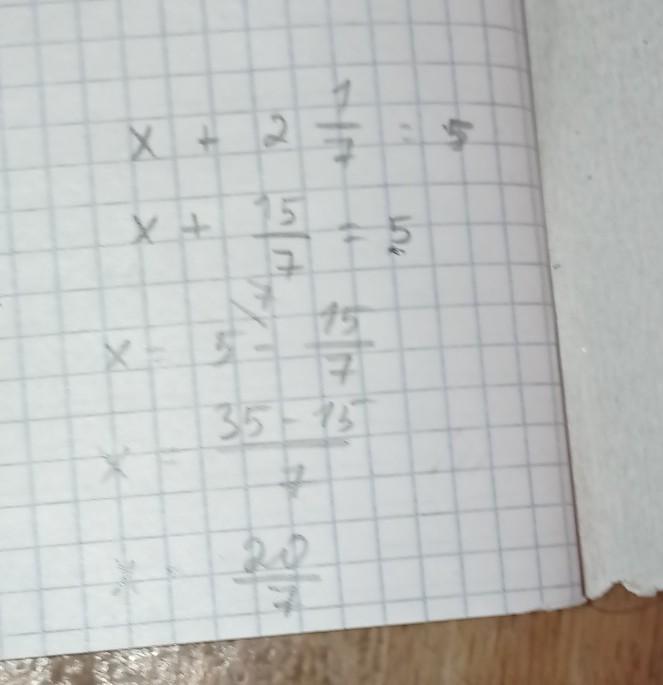 x + 2 1/7 = 5
x + 15/7 = 5
x = 5\7 - 15/7
x = (35 - 15)/7
x = 20/7